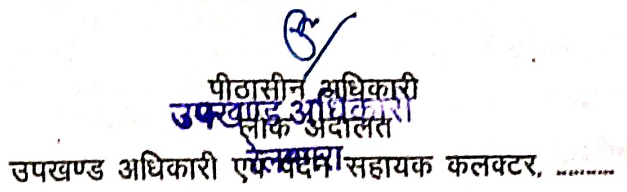 पीठासीन अधिकारी
उपखण्ड अधिकारी
लोक अदालत
उपखण्ड अधिकारी एवं पदेन सहायक कलक्टर, ..........